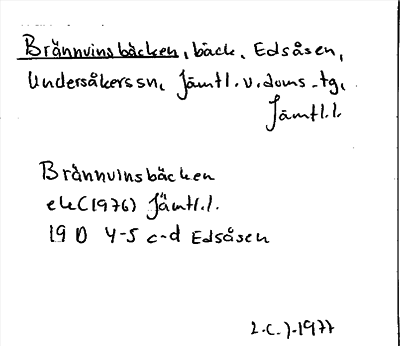 Brännvinsbäcken, bäck, Edsåsen,
Undersåkerssn, Jämtl.v.doms.tg,
Jämtl.l.
Brännvinsbäcken
ek(1976) Jämtl.l.
19 D 4-5 c-d Edsåsen